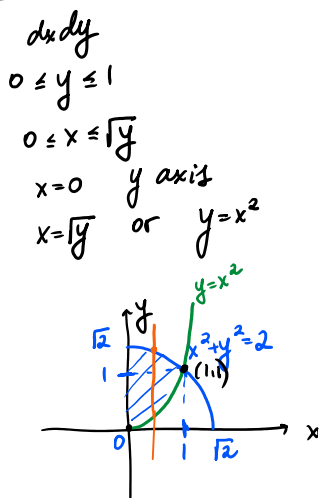 dxdy
0 ≤ y ≤ 1
0 ≤ x ≤ √y
x=0 y axis
x=√y or y=x²
y=x²
y
√2
x²+y²=2
1
(1,1)
x
0
1
√2